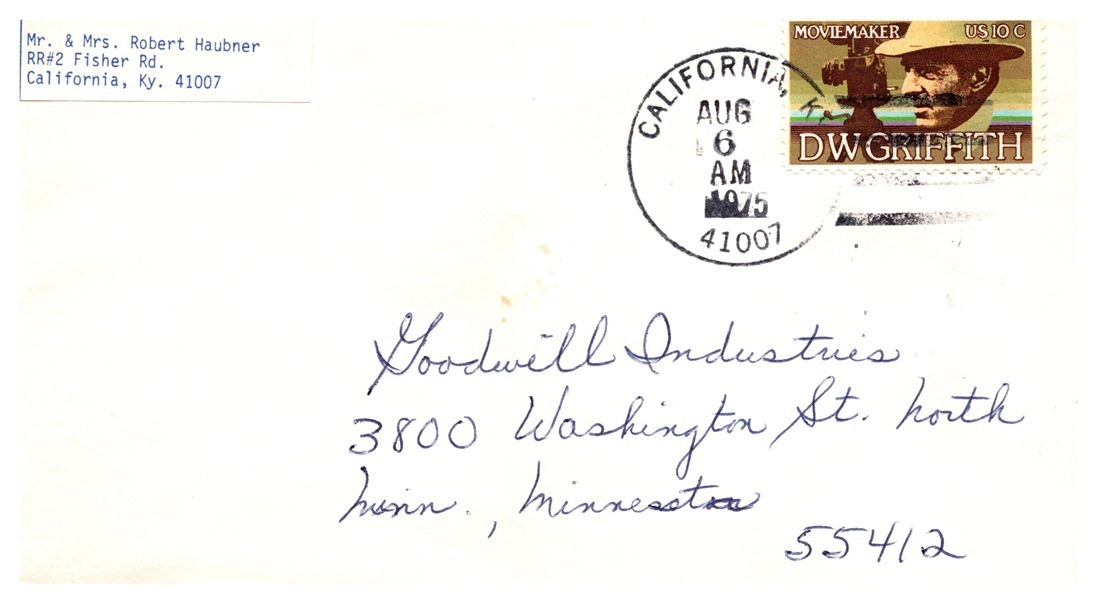 Mr. & Mrs. Robert Haubner
RR#2 Fisher Rd.
California, Ky. 41007
MOVIEMAKER US 10 C
DW GRIFFITH
CALIFORNIA, KY
AUG
6
AM
1975
41007
Goodwill Industries
3800 Washington St. North
Minn., Minnesota
55412